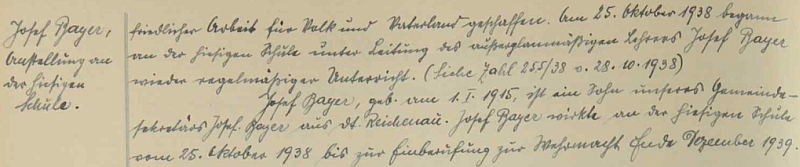 Josef Bayer,
Anstellung an
der hiesigen
Schule.
friedlicher Arbeit für Volk und Vaterland geschaffen. Am 25. Oktober 1938 begann
an der hiesigen Schule unter Leitung des außerplanmäßigen Lehrers Josef Bayer
wieder regelmäßiger Unterricht. (Siehe Zahl 255/38 v. 28.10.1938)
Josef Bayer, geb. am 1. I. 1915, ist ein Sohn unseres Gemeinde-
sekretärs Josef Bayer aus dt. Reichenau. Josef Bayer wirkte an der hiesigen Schule
vom 25. Oktober 1938 bis zur Einberufung zur Wehrmacht Ende Dezember 1939.